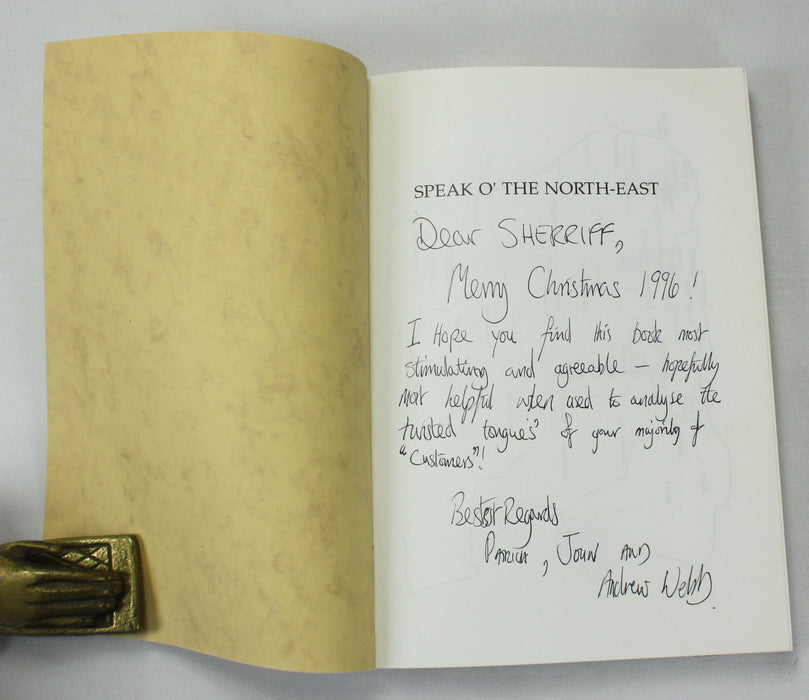 SPEAK O' THE NORTH-EAST
Dear SHERRIFF,
Merry Christmas 1996!
I Hope you find this book most
stimulating and agreeable — hopefully
most helpful when used to analyse the
twisted "tongues" of your majority of
"Customers"!
Bestest Regards
Patricia, John and
Andrew Webb.